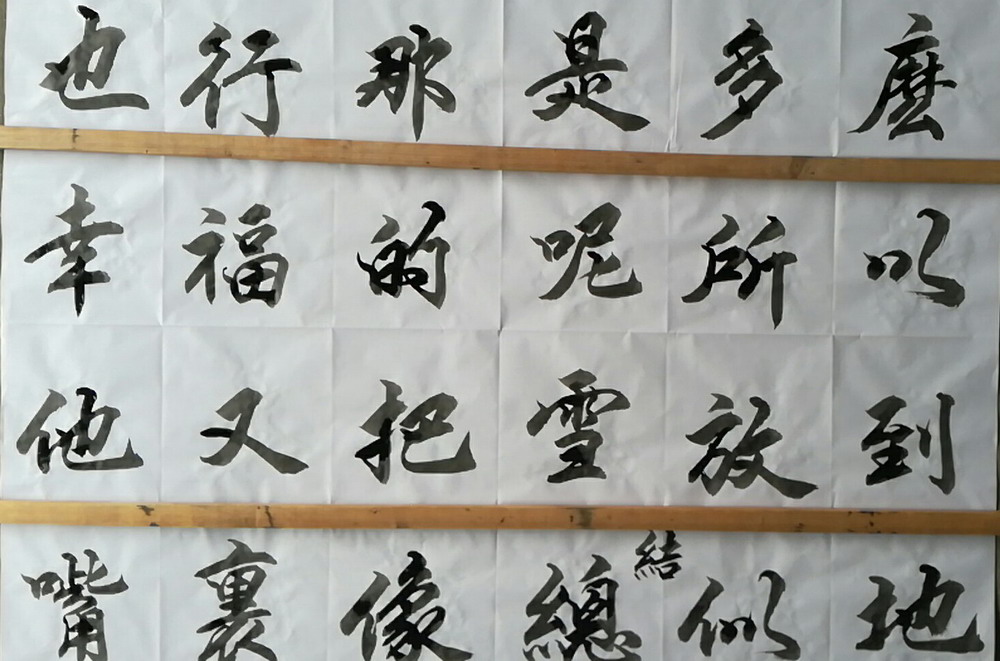 也行那是多麽
幸福的呢所以
他又把雪放到
嘴裏像總結似地